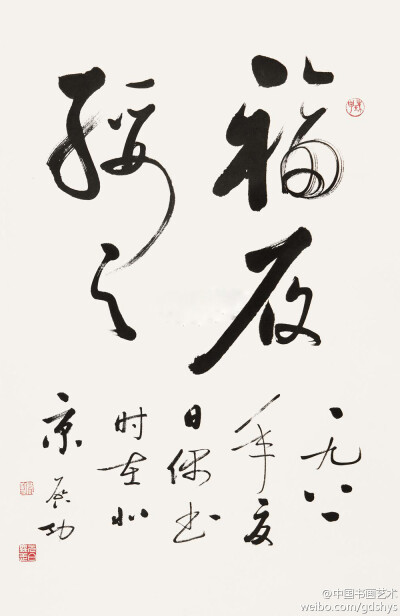 福履
綏之
一九八一
年夏
日偶书
时在北
京 启功
@中国书画艺术
weibo.com/gdshys